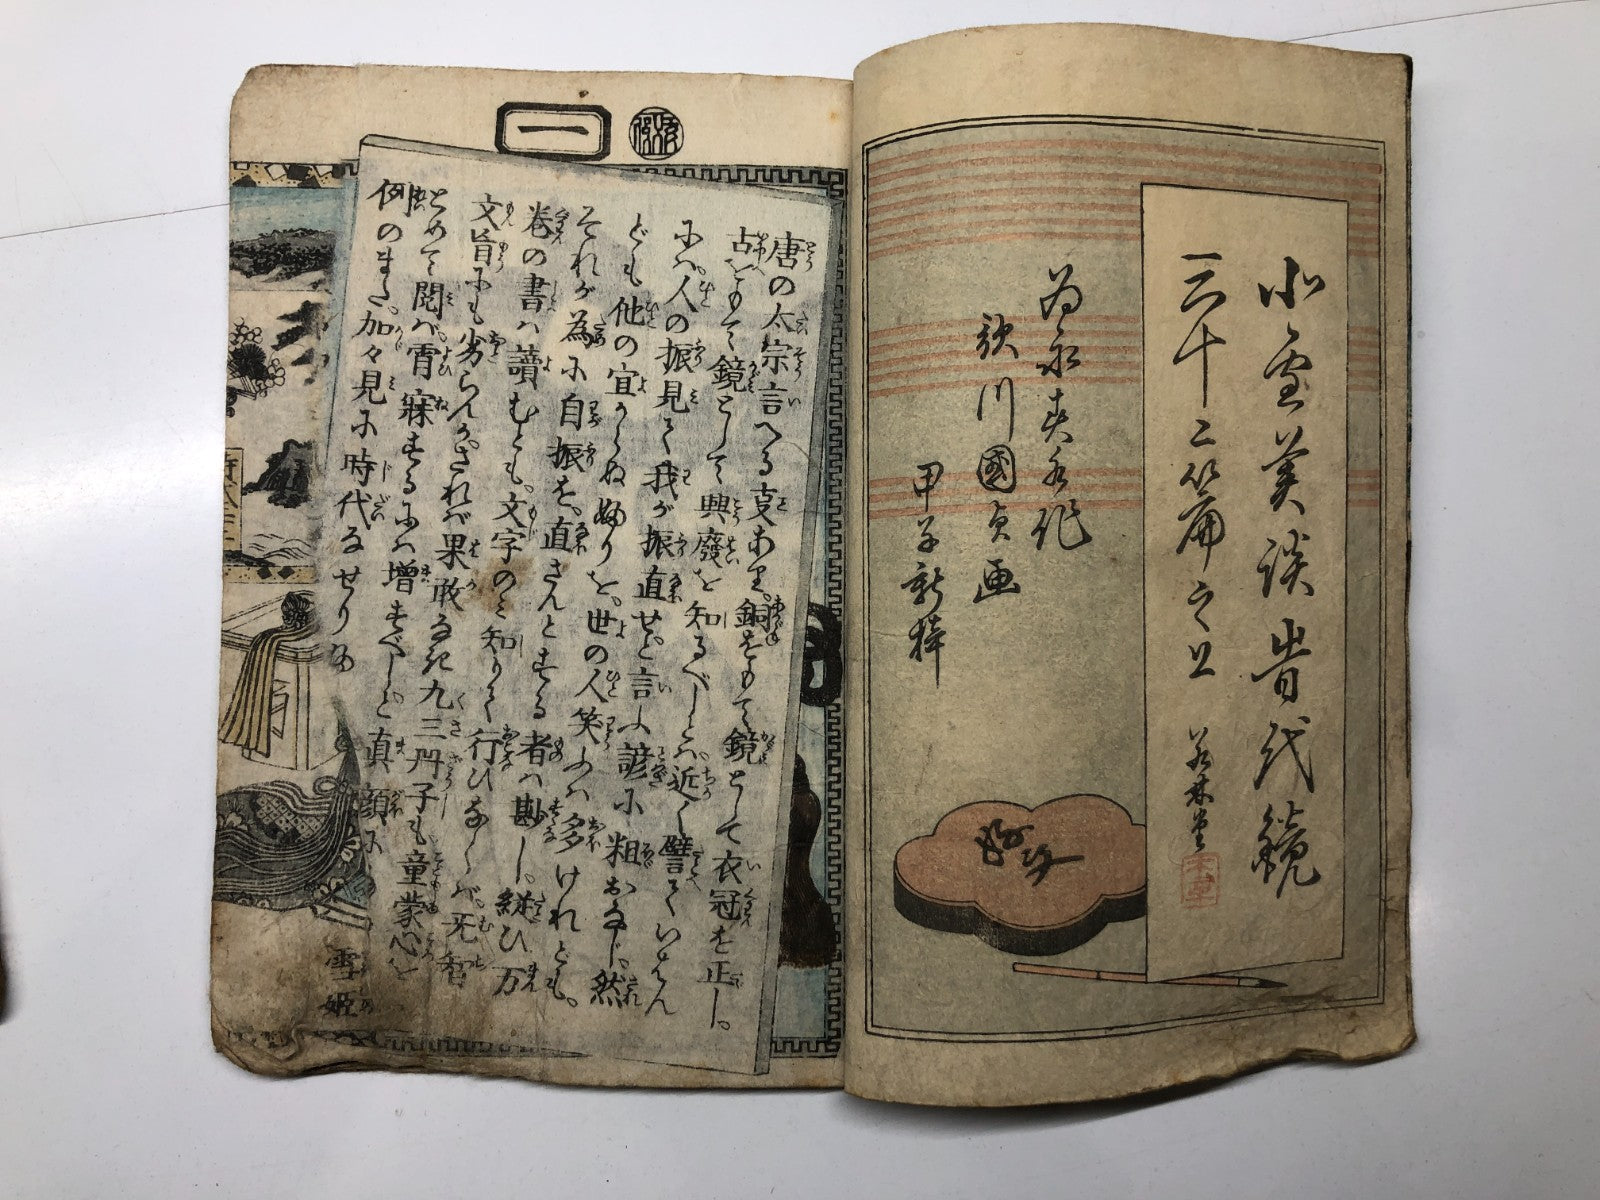 小雪美談昔代鏡
三十二篇之上
若林堂
為永春水作
歌川國貞画
甲子新梓
一
唐の太宗言へる事あり。銅をもて鏡として衣冠を正し。
古をもて鏡として興廢を知るべしとハ近く譬ていはん
にハ人の振見て我が振直せと言ふ諺に粗おなじ。然
ども他の宜からぬ婦りを。世の人笑ふハ多けれども。
それが為に自振を。直さんとする者ハ尠し。縦ひ万
巻の書ハ讀むとも。文字のミ知りて行ひなくバ无智
文旨にも劣らんか。されバ果敢なき九三冊子も童蒙心を
とめて閲バ宵寐するにハ増すべしと真顔に
例のまた。加々見に時代なせりか
雪姫